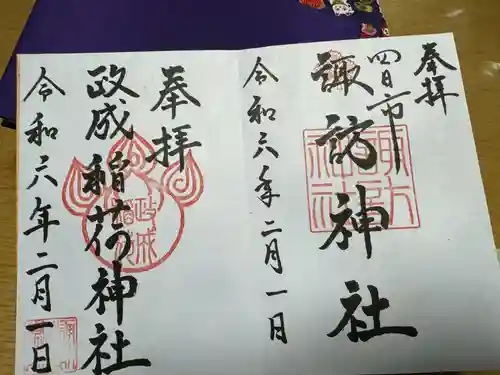 奉拝
四日市
諏訪神社
令和六年二月一日
奉拝
政成稲荷神社
令和六年二月一日